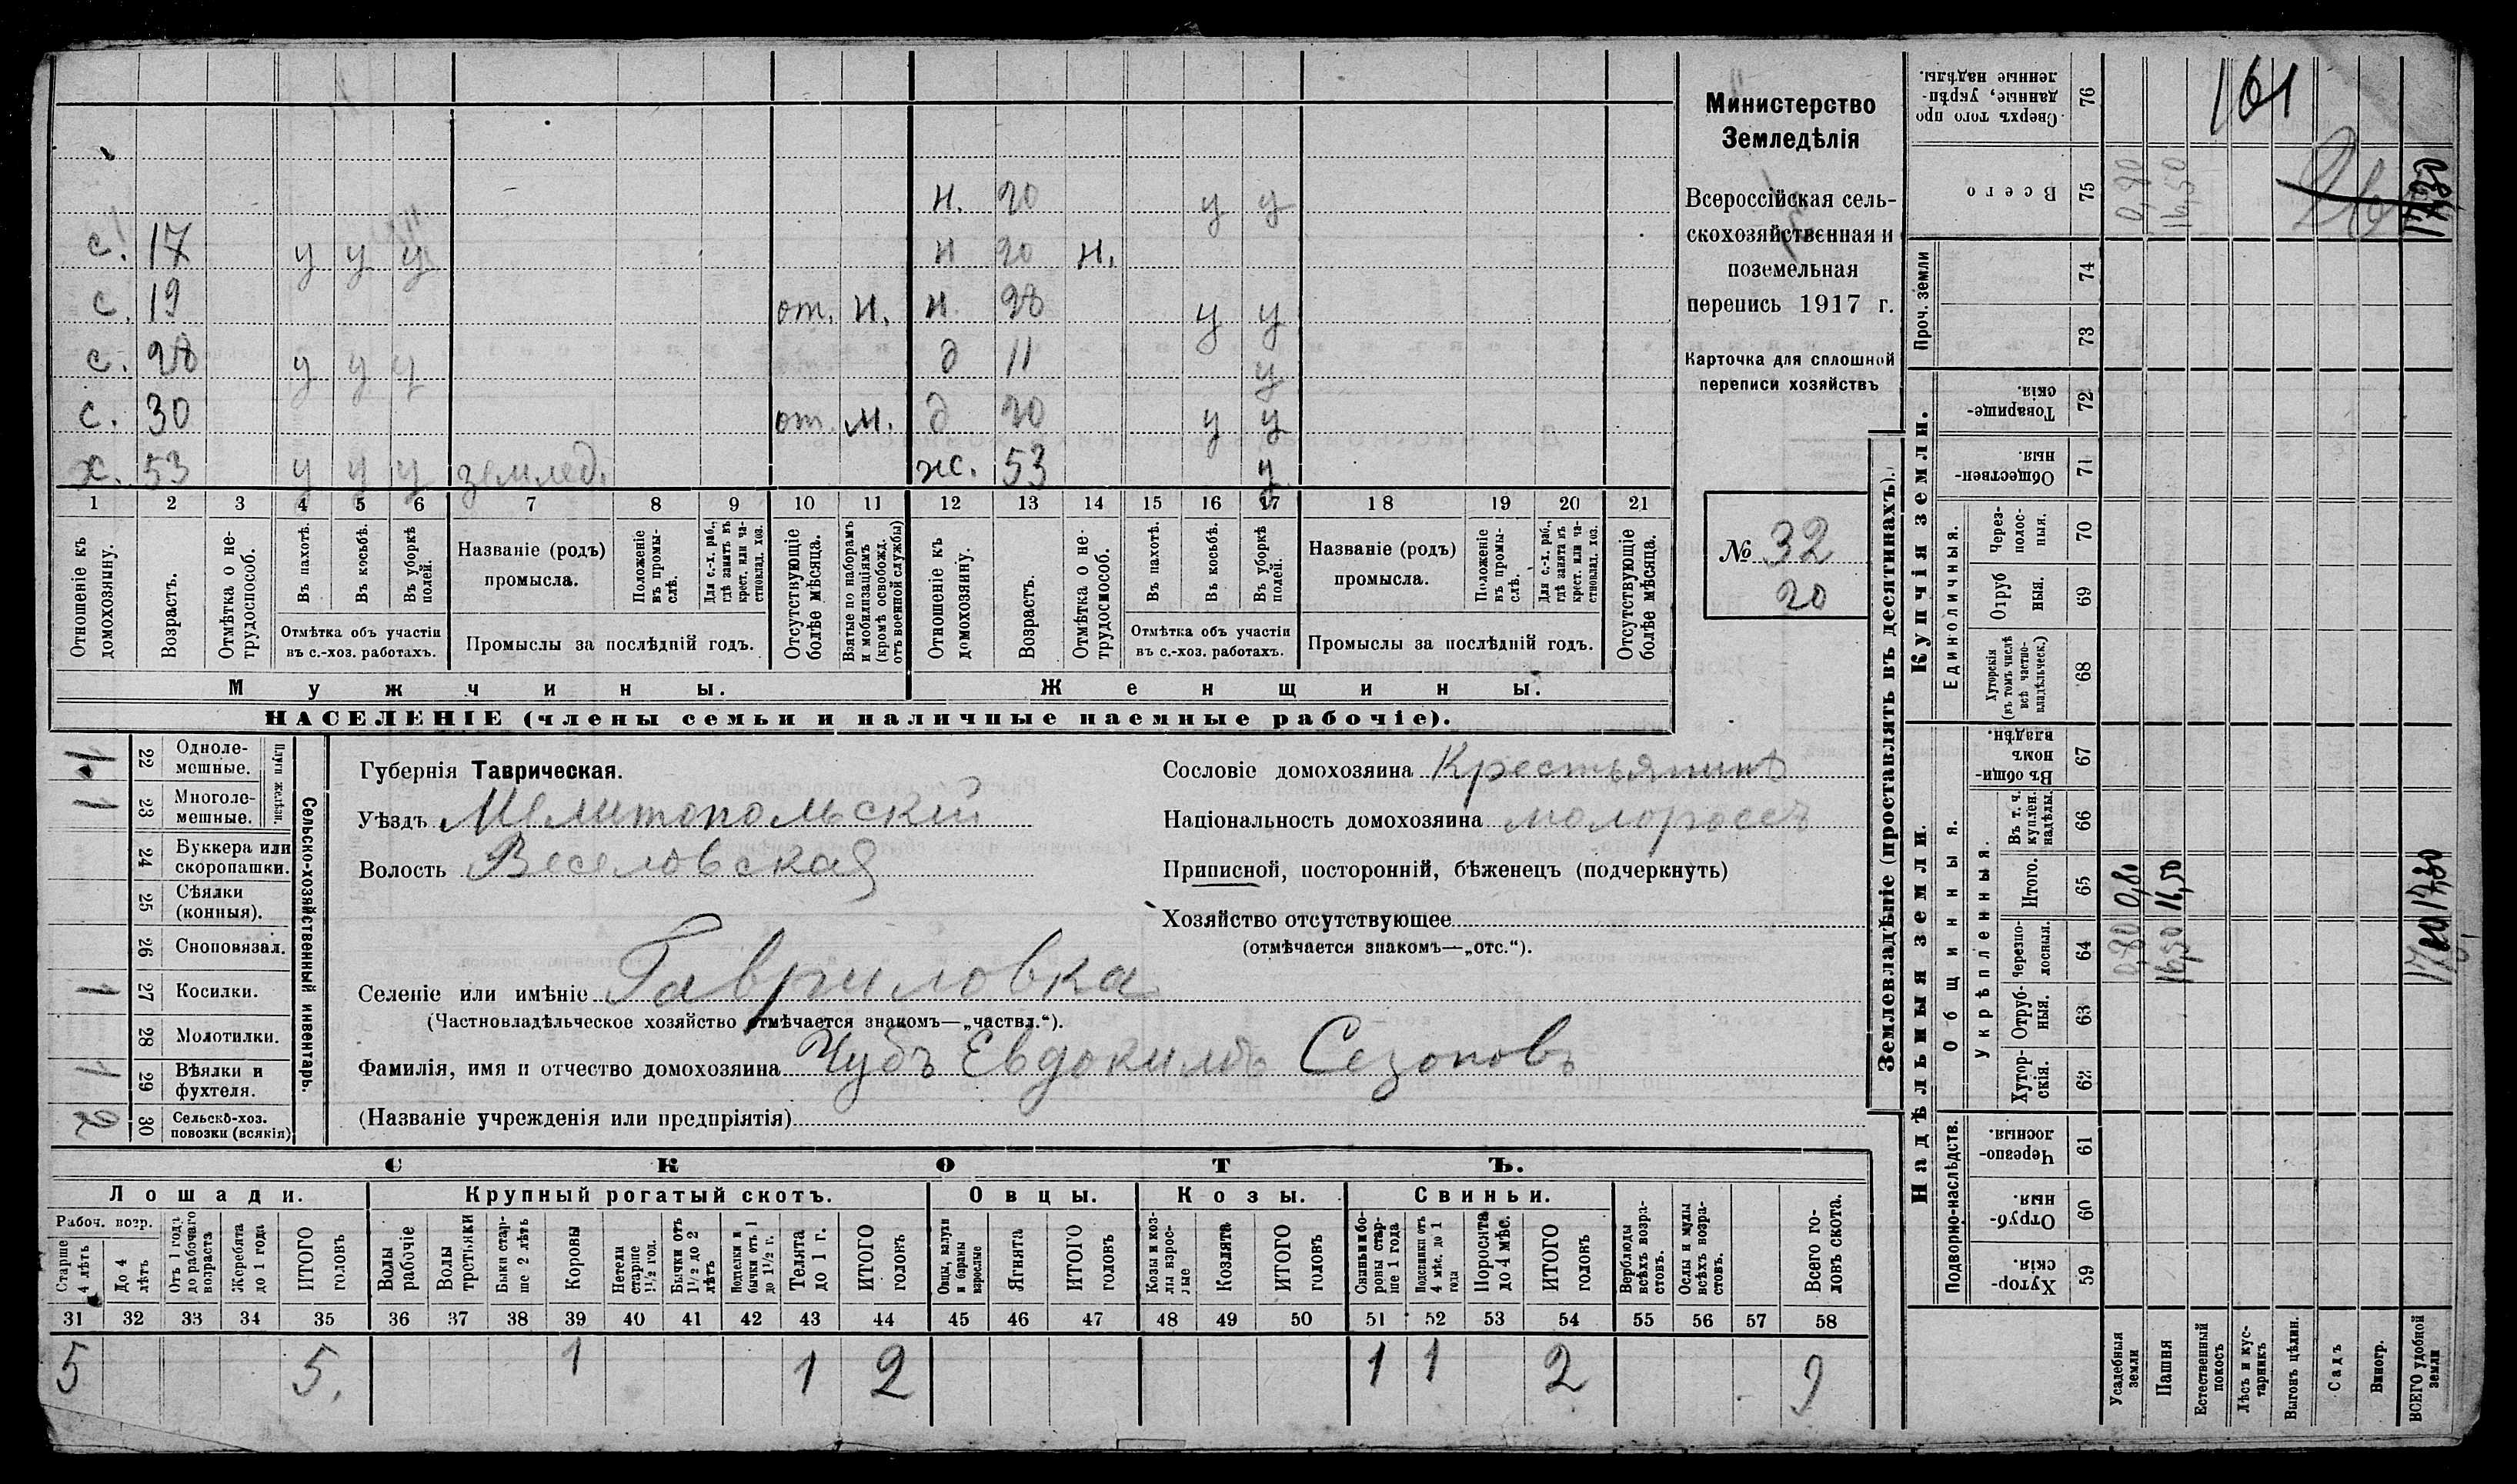 Министерство
Земледѣлія
Всероссійская сель-
скохозяйственная и
поземельная
перепись 1917 г.
Карточка для сплошной
переписи хозяйствъ
№ 32
20
н. 20 у у
с. 17 у у у н 20 н.
с. 19 от. н. н. 28 у у
с. 28 у у у д 11 у
с. 30 от. м. д 20 у у
х. 53 у у у землед. ж. 53 у
1 2 3 4 5 6 7 8 9 10 11 12 13 14 15 16 17 18 19 20 21
Отношеніе къ домохозяину.
Возрастъ.
Отмѣтка о не-трудоспособ.
Въ пахотѣ.
Въ косьбѣ.
Въ уборкѣ полей.
Отмѣтка объ участіи въ с.-хоз. работахъ.
Названіе (родъ) промысла.
Положеніе въ промы-слѣ.
Для с.-х. раб., гдѣ занятъ въ крест. или ча-стновлад. хоз.
Промыслы за послѣдній годъ.
Отсутствующіе болѣе мѣсяца.
Взятые по наборамъ и мобилизаціямъ (кромѣ освобожд. отъ военной службы)
Отношеніе къ домохозяину.
Возрастъ.
Отмѣтка о не-трудоспособ.
Въ пахотѣ.
Въ косьбѣ.
Въ уборкѣ полей.
Отмѣтка объ участіи въ с.-хоз. работахъ.
Названіе (родъ) промысла.
Положеніе въ промы-слѣ.
Для с.-х. раб., гдѣ занята въ крест. или ча-стновлад. хоз.
Промыслы за послѣдній годъ.
Отсутствующіе болѣе мѣсяца.
Мужчины. Женщины.
НАСЕЛЕНІЕ (члены семьи и наличные наемные рабочіе).
Сельско-хозяйственный инвентарь.
Плуги желѣзн.
1 22 Одноле-мешные.
1 23 Многоле-мешные.
24 Буккера или скоропашки.
25 Сѣялки (конныя).
26 Сноповязал.
1 27 Косилки.
28 Молотилки.
1 29 Вѣялки и фухтеля.
2 30 Сельско-хоз. повозки (всякія)
Губернія Таврическая.
Уѣздъ Мелитопольскій
Волость Веселовская
Сословіе домохозяина Крестьянинъ
Національность домохозяина малороссъ
Приписной, посторонній, бѣженецъ (подчеркнуть)
Хозяйство отсутствующее
(отмѣчается знакомъ—„отс.“).
Селеніе или имѣніе Гавриловка
(Частновладѣльческое хозяйство отмѣчается знакомъ—„частвл.“).
Фамилія, имя и отчество домохозяина Чубъ Евдокимъ Сезоновъ
(Названіе учрежденія или предпріятія)
СКОТЪ.
Лошади. Крупный рогатый скотъ. Овцы. Козы. Свиньи.
Рабоч. возр.
Старше 4 лѣтъ
До 4 лѣтъ
Отъ 1 года до рабочаго возраста
Жеребята до 1 года
ИТОГО головъ
Волы рабочіе
Волы третьяки
Быки стар-ше 2 лѣтъ
Коровы
Нетели старше 1½ год.
Бычки отъ 1½ до 2 лѣтъ
Подтелки и бычки отъ 1 до 1½ г.
Телята до 1 г.
ИТОГО головъ
Овцы, валухи и бараны взрослые
Ягнята
ИТОГО головъ
Козы и коз-лы взрос-лые
Козлята
ИТОГО головъ
Свиньи и бо-ровы стар-ше 1 года
Подсвинки отъ 4 мѣс. до 1 года
Поросята до 4 мѣс.
ИТОГО головъ
Верблюды всѣхъ возра-стовъ.
Ослы и мулы всѣхъ возра-стовъ.
Всего го-ловъ скота.
31 32 33 34 35 36 37 38 39 40 41 42 43 44 45 46 47 48 49 50 51 52 53 54 55 56 57 58
5 5. 1 1 2 1 1 2 9
Землевладѣніе (проставлять въ десятинахъ).
Купчія земли.
Надѣльныя земли.
161
Сверхъ того про данные, укрѣп-ленные надѣлы. 76
Всего 75 0,80 16,50
Проч. земли 74 73
Товарище-скія. 72
Обществен-ныя. 71
Единоличныя.
Через-полос-ныя. 70
Отруб ныя. 69
Хуторскія (въ томъ числѣ всѣ частно-владѣльческ.) 68
Общинныя.
Въ общин-номъ владѣн. 67
Укрѣпленныя.
Въ т. ч. куплен. надѣлы. 66
Итого. 65 0,80 16,50
Черезпо-лосныя. 64 0,80 16,50
Отруб-ныя. 63
Хутор-скія. 62
Подворно-наслѣдств.
Черезпо-лосныя. 61
Отруб-ныя. 60
Хутор-скія. 59
Усадебныя земли
Пашня
Естественный покосъ
Лѣсъ и кус-тарникъ
Выгонъ цѣлин.
Садъ
Виногр.
ВСЕГО удобной земли